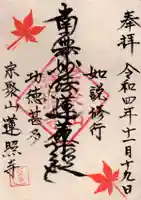 奉拝
令和四年十一月十九日
如説修行
南無妙法蓮華経
功徳甚多
宗聚山
蓮照寺